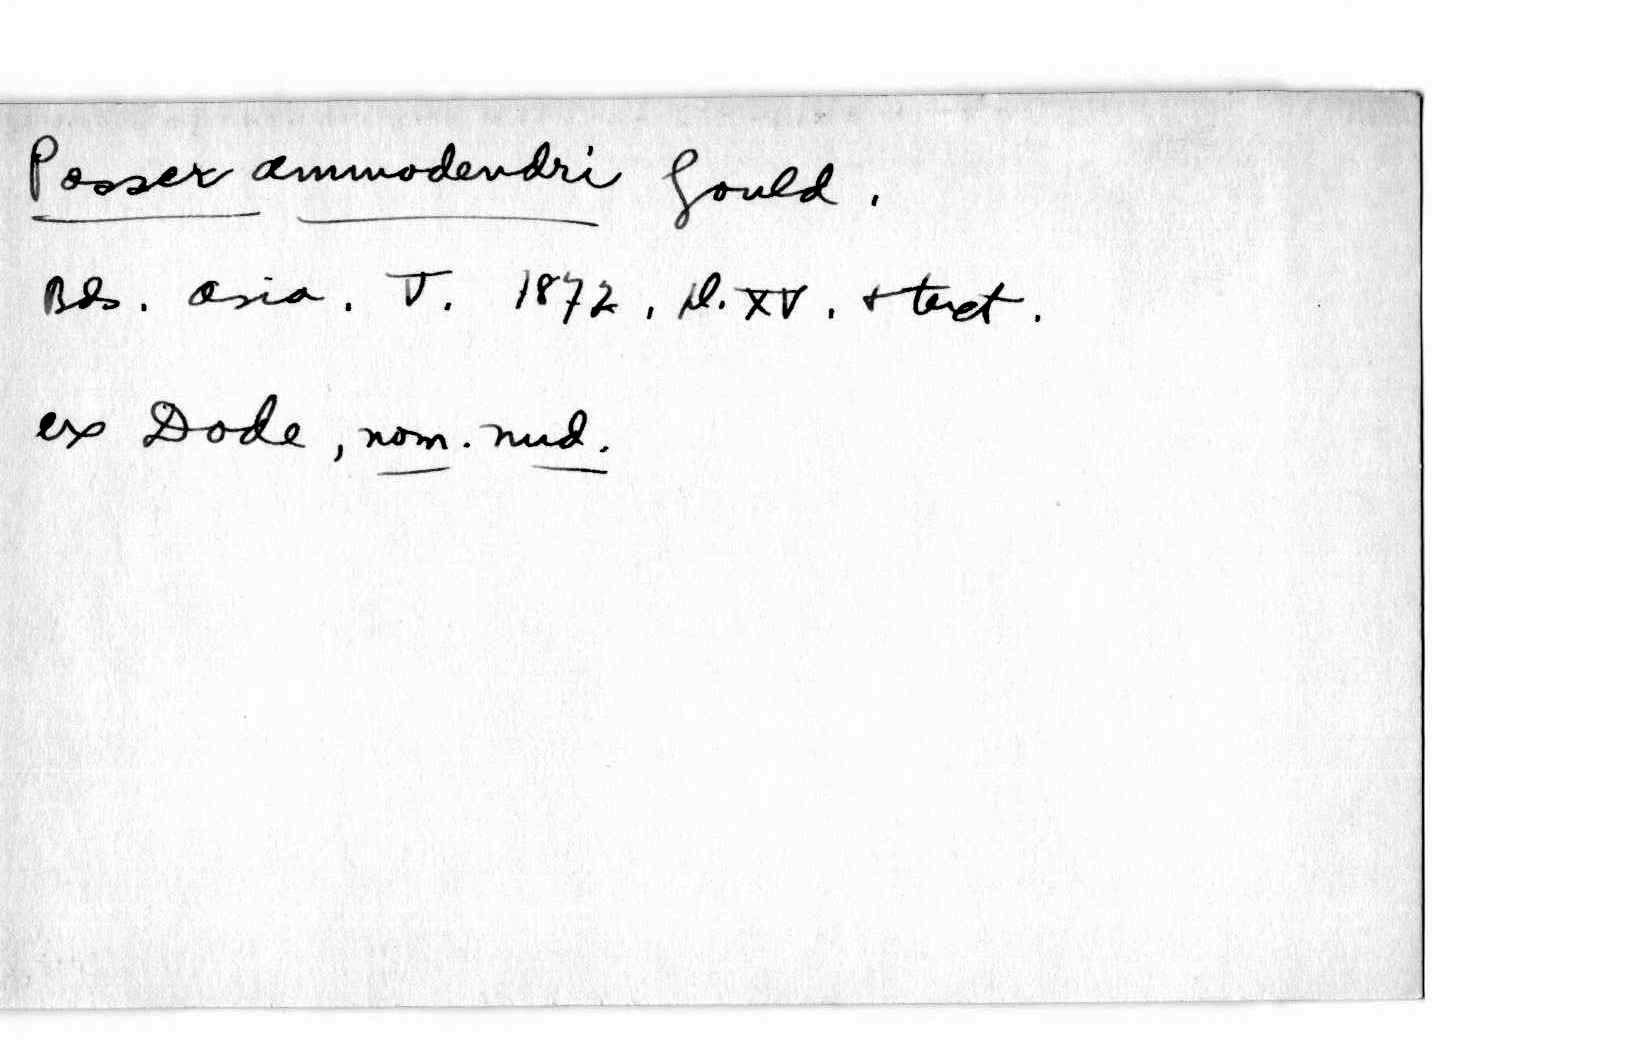 Passer ammodendri Gould.
Bds. Asia. V. 1872, pl. XV. + text.
ex Dode, nom. nud.